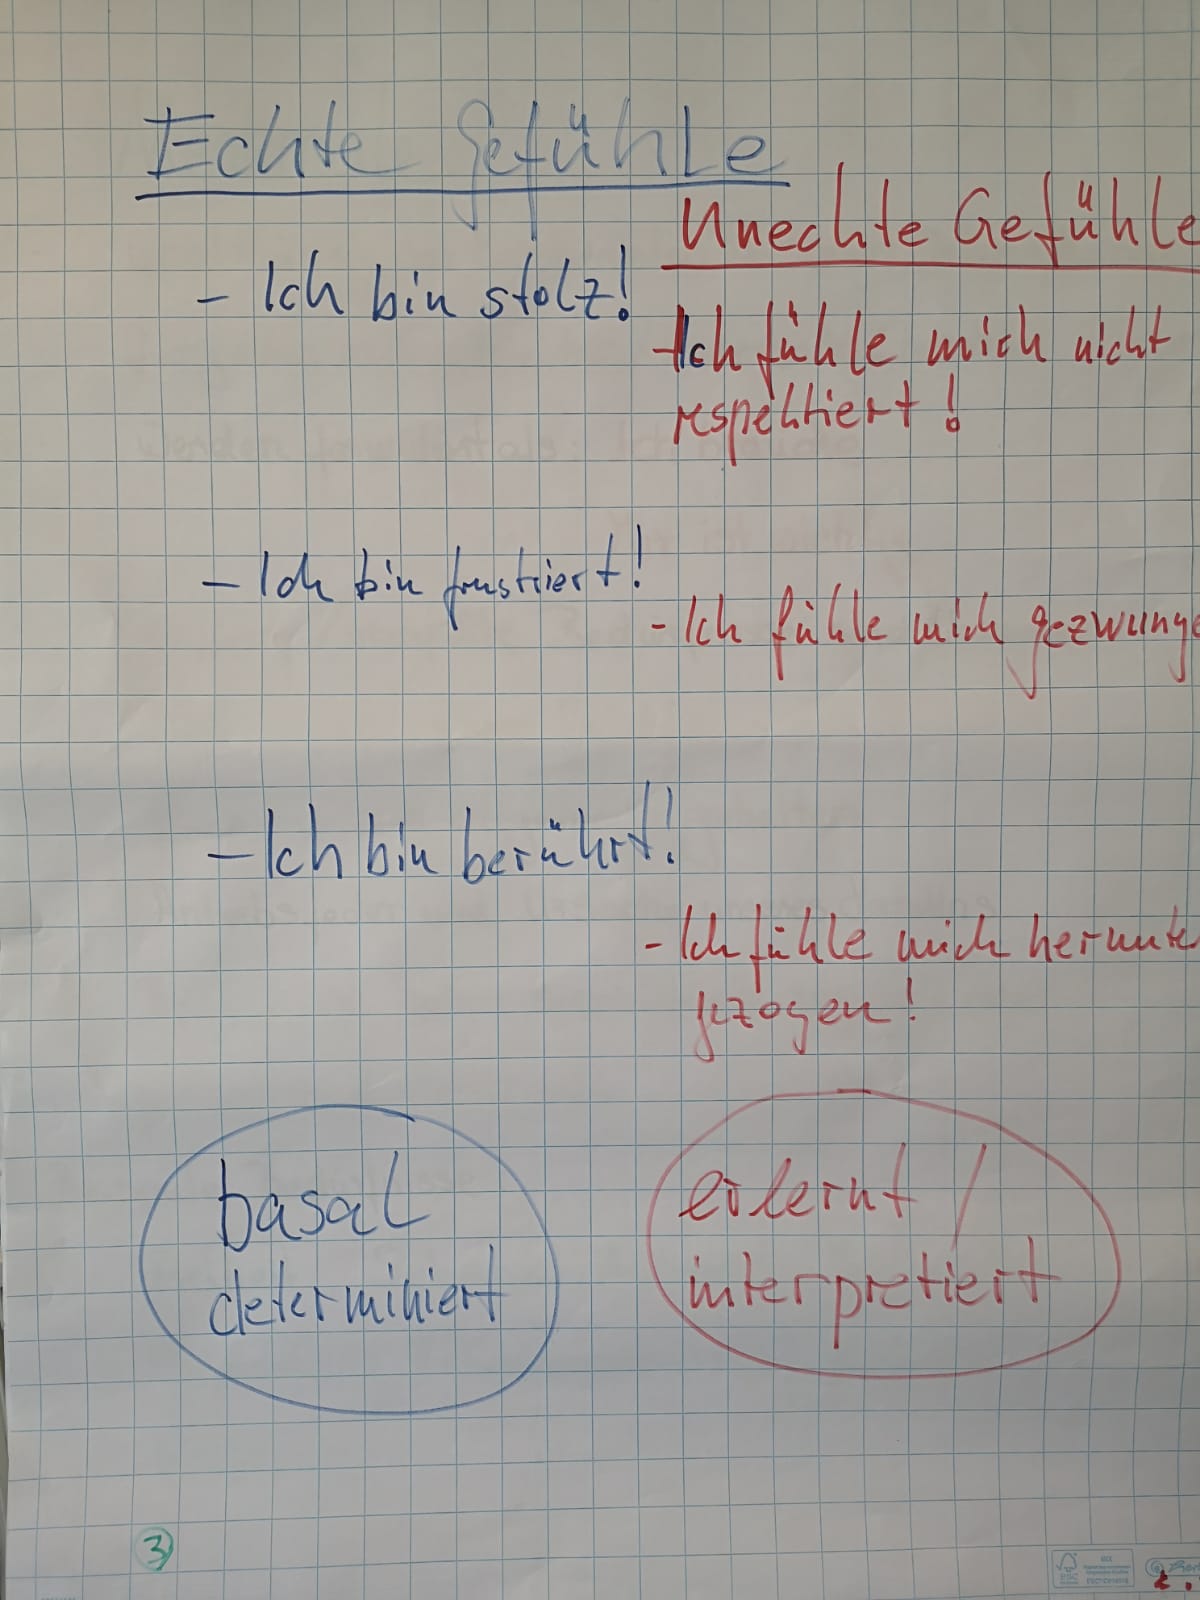 Echte Gefühle
Unechte Gefühle
- Ich bin stolz!
- Ich fühle mich nicht
respektiert!
- Ich bin frustriert!
- Ich fühle mich gezwunge
- Ich bin berührt!
- Ich fühle mich herunte
gezogen!
basal
determiniert
erlernt /
interpretiert
3
FSC
MIX